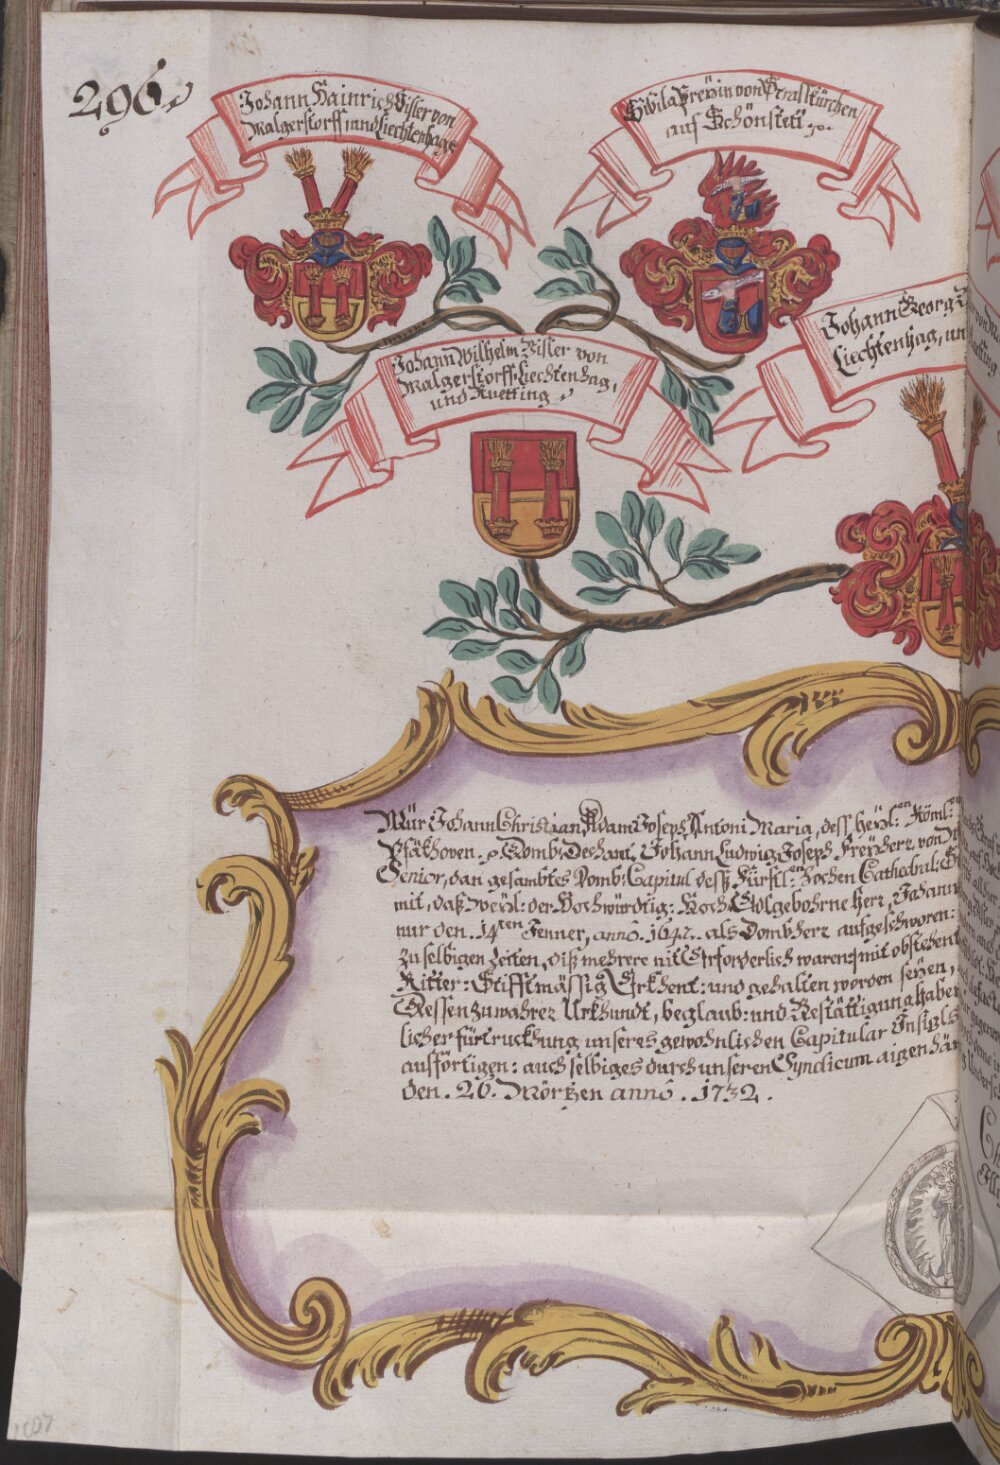 296
Johann Hainrich Gisler von
Malgerstorff und Liechtenhage
Sibila Freÿin von Strasskürchen
auf Schönstett
Johann Wilhelm Gisler von
Malgerstorff, Liechtenhag,
und Ruetting
Johann Georg
Liechtenhag, un
Wür Johann Christian Adam Joseph Antoni Maria, dess heÿl: Röml:
Domb Dechant, Johann Ludwig Joseph Freÿherr von
Senior, dan gesambtes Domb: Capitul dess Fürstl: Cathedral:
mit, daß Weÿl: der Hochwürdig: Hoch Edlgebohrne Herr, Johann
nur den. 14ten Jenner, anno. als Dombherr aufgeschworen:
zu selbigen Zeiten, diß mehrere nit Erforderlich waren: mit obstehent
Ritter: Stifftmässig Erkhent: und gehalten worden seÿen,
Dessen zu wahrer Urkhundt, beglaub: und Bestättigung haben
licher fürtruckhung unseres gewohnlichen Capitular Insigls
ausförtigen: auch selbiges durch unseren Syndicum aigenhän
den. 26. Mörtzen anno. 1732.